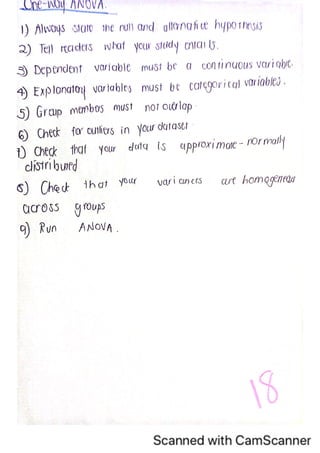 One-Way ANOVA.
1) Always state the null and alternative hypothesis
2) Tell readers what your study entails.
3) Dependent variable must be a continuous variable.
4) Explanatory variables must be categorical variables.
5) Group members must not overlap.
6) Check for outliers in your dataset.
7) Check that your data is approximate-normally
distributed
8) Check that your variances are homogeneous
across groups
9) Run ANOVA.
18
Scanned with CamScanner